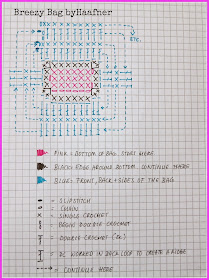 Breezy Bag by Haafner
ETC.
PINK = BOTTOM OF BAG. START HERE
BLACK = EDGE AROUND BOTTOM. CONTINUE THERE
BLUE = FRONT, BACK + SIDES OF THE BAG
= SLIPSTITCH
= CHAIN
= SINGLE CROCHET
= BEGIN DOUBLE CROCHET
= DOUBLE CROCHET (DC)
= DC WORKED IN BACK LOOP TO CREATE A RIDGE
= CONTINUE HERE